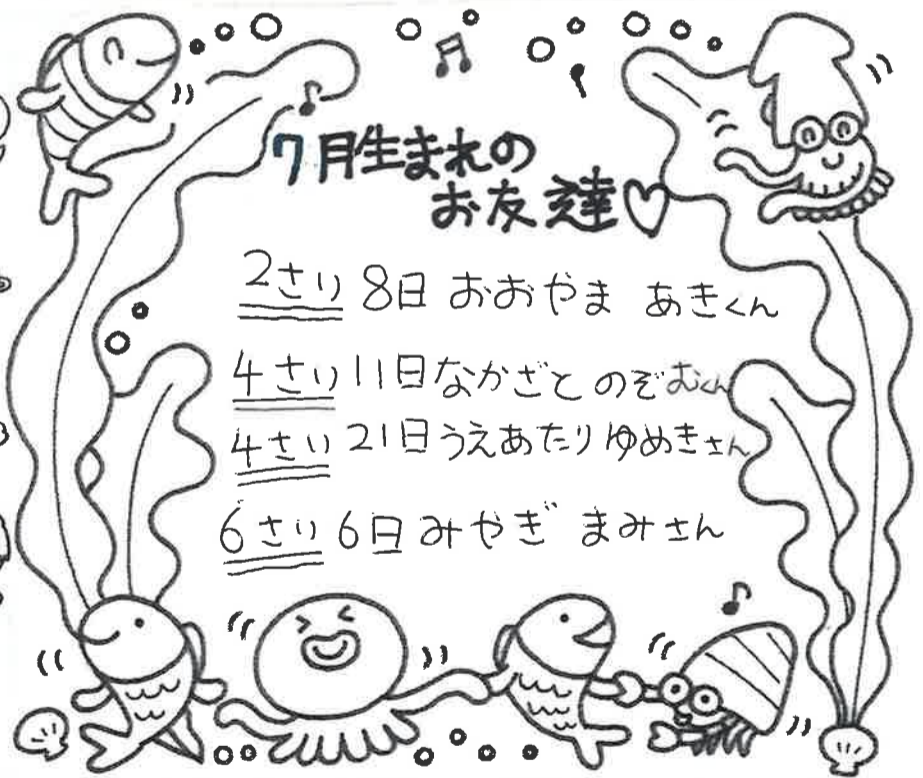 7月生まれの
お友達♡
2さい 8日 おおやま あきくん
4さい 11日 なかざと のぞむくん
4さい 21日 うえあたり ゆめきさん
6さい 6日 みやぎ まみさん